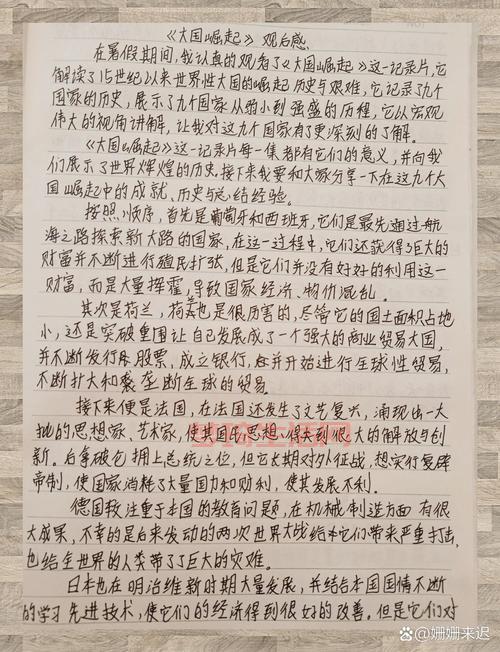 《大国崛起》观后感
在暑假期间,我认真的观看了《大国崛起》这一记录片,它
解读了15世纪以来世界性大国的崛起历史与艰难,它记录了九个
国家的历史,展示了九个国家从弱小到强盛的历程,它以宏观
伟大的视角讲解,让我对这九个国家有了更深刻的了解。
《大国崛起》这一记录片每一集都有它们的意义,并向我
们展示了世界辉煌的历史,接下来我要和大家分享一下在这九个大
国崛起中的成就、历史与总结经验。
按照顺序,首先是葡萄牙和西班牙,它们是最先通过航
海之路探索新大路的国家,在这一过程中,它们还获得了巨大的
财富并不断进行殖民扩张,但是它们并没有好好的利用这一
财富,而是大量挥霍,导致国家经济、物价混乱。
其次是荷兰,荷兰也是很厉害的,尽管它的国土面积占地
小,还是突破重围让自己发展成了一个强大的商业贸易大国,
并不断发行股票,成立银行,并开始进行全球性贸易,
不断扩大和垄断全球的贸易。
接下来便是法国,在法国还发生了文艺复兴,涌现出一大
批的思想家、艺术家,使我国民思想得到很大的解放与创
新。后拿破仑拥上总统之位,但它长期对外征战,想实行复辟
帝制,使国家消耗了大量国力和财利,使其发展不利。
德国较注重于本国的教育问题,在机械制造方面有很
大成果,不幸的是后来发动的两次世界大战给它们带来严重打击,
也给全世界的人类带了了巨大的灾难。
日本也在明治维新时期大量发展,并结合本国国情不断
的学习先进技术,使它们的经济得到很好的改善。但是它们对
百家号/姗姗来迟